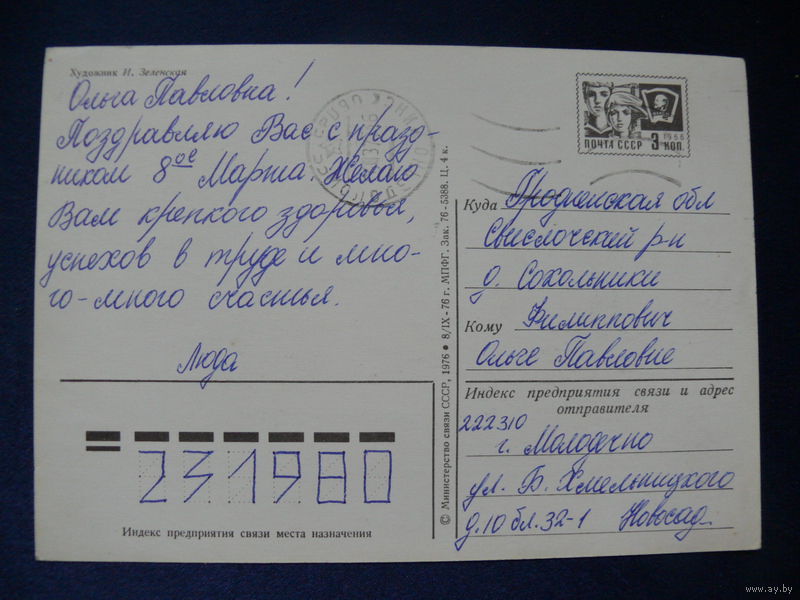 Художник И. Зеленская
Ольга Павловна!
Поздравляю Вас с празд-
ником 8ое Марта. Желаю
Вам крепкого здоровья,
успехов в труде и мно-
го-много счастья.
Люда
231980
Индекс предприятия связи места назначения
© Министерство связи СССР, 1976 • 8/IX-76 г. МПФГ. Зак. 76-5388. Ц. 4 к.
1966
ПОЧТА СССР 3 КОП.
Куда Гродненская обл
Свислочский р-н
д. Сокольники
Кому Филиппович
Ольге Павловне
Индекс предприятия связи и адрес
отправителя
222310
г. Молодечно
ул. Б. Хмельницкого
д. 10 бл. 32-1 Новосад
www.ay.by